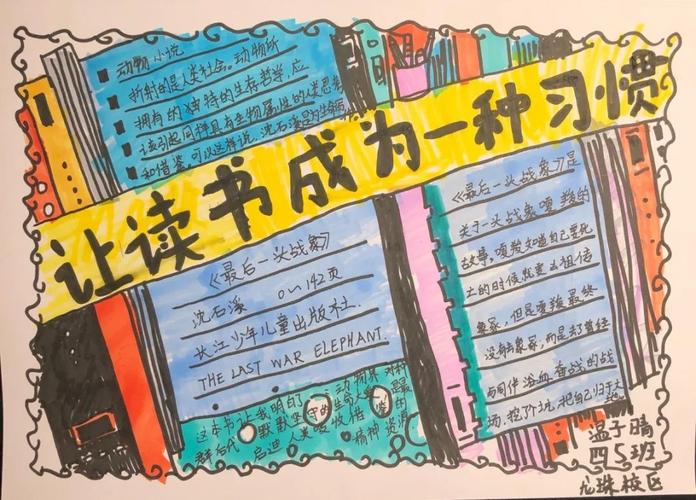 动物小说
折射的是人类社会。动物所
拥有的独特的生存哲学,应
该引起同样具有生物属性的人类思考
和借鉴,可以这样说,沈石溪是为生命而
让读书成为一种习惯
《最后一头战象》
沈石溪 0~142页
长江少年儿童出版社.
THE LAST WAR ELEPHANT
《最后一头战象》是
关于一头战象嘎羧的
故事,嘎羧知道自己要死
去的时候就要去祖传
象冢,但是嘎羧最终
没有去象冢,而是去了曾经
与同伴浴血奋战的战
场,挖个坑,把自己归于大地
这本书让我明白了
动物界对种
群后代默默坚守的生命大爱
启迪人类吸收借鉴的精神资源
温子晴
四5班
龙珠校区